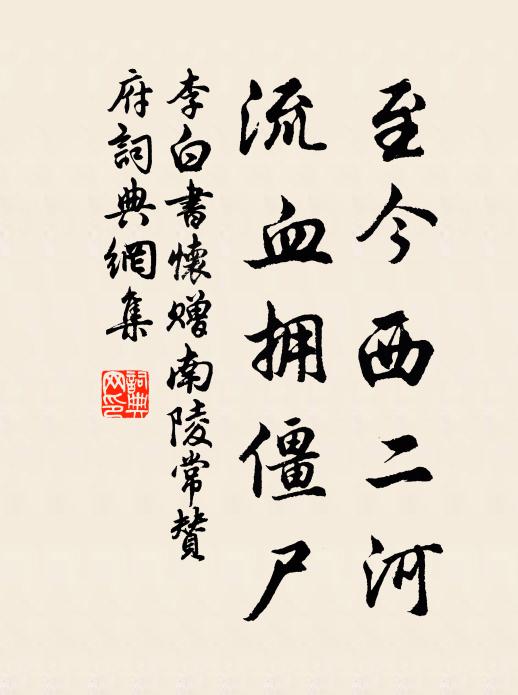 至今西二河
流血拥僵尸
李白書懷贈南陵常贊
府詞典網集
詞典
网印